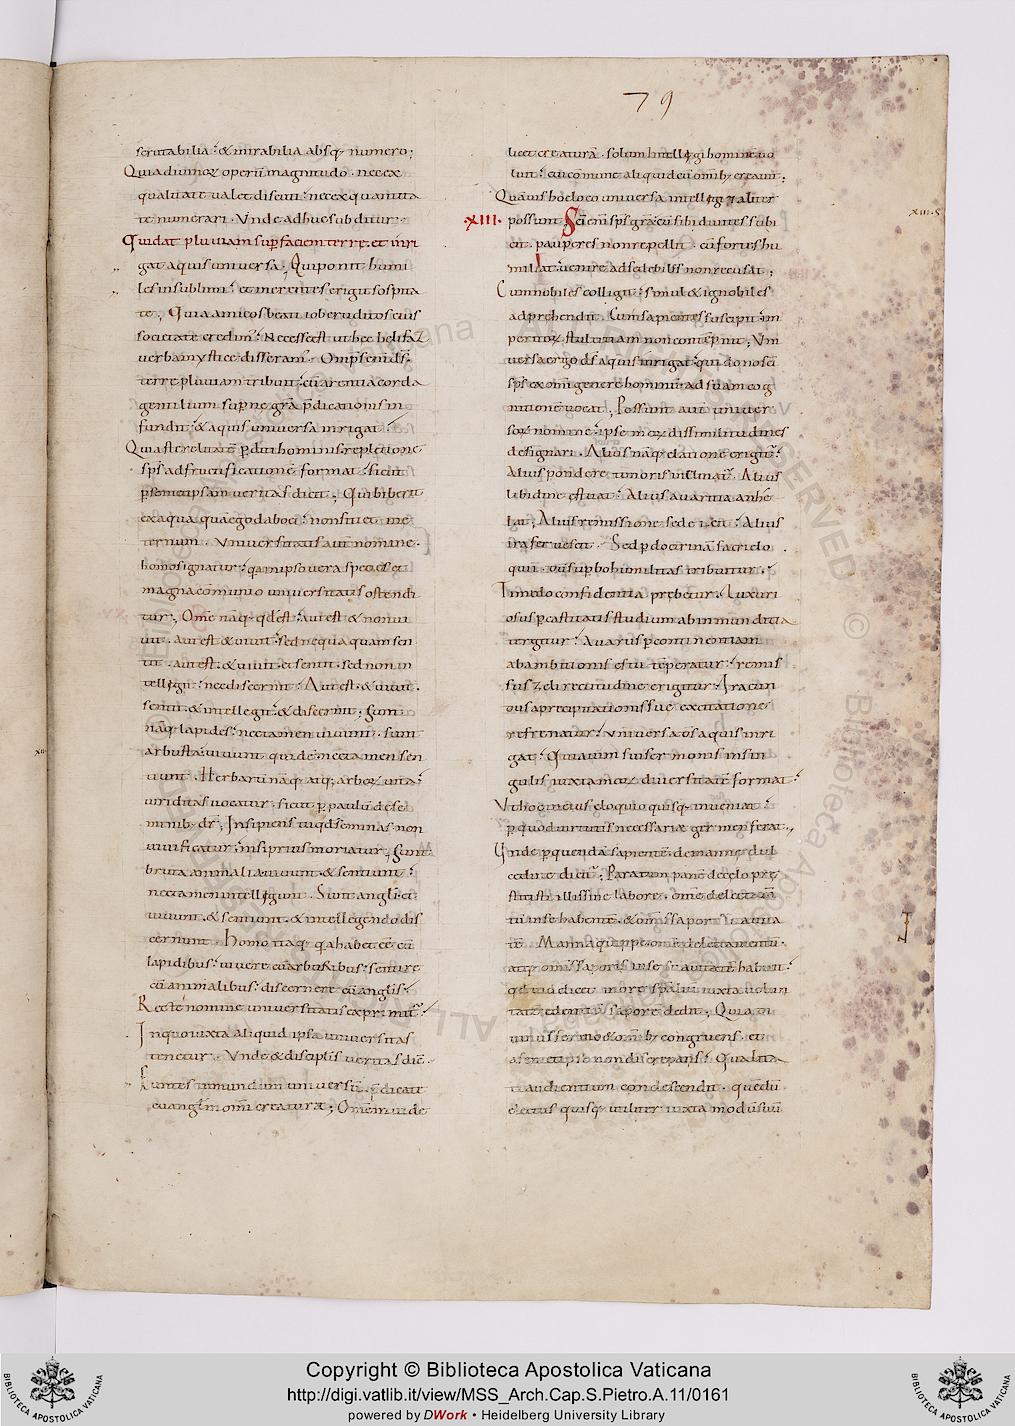 79
scrutabilia: & mirabilia absq; numero;
Quia diuinoꝝ operū magnitudo. nec ex
qualitate ualet discuti: nec ex quantita
te numerari. Vnde adhuc subditur.
Qui dat pluuiam sup faciem terre. et inri
gat aquis uniuersa; Qui ponit humi
les in sublimi: et merentes erigit sospita
te; Quia amicos beati iob eruditos eius
societate credim: Necesse est ut hec helifaz
uerba mystice disseram. Omps eni ds
terre pluuiam tribuit: cū arentia corda
gentilium supne gra pdicationis in
fundit: & aquis uniuersa inrigat:
Quia sterelitatē pditi hominis repletione
sps ad fructificatione format: sicut
p semetipsam ueritas dicit; Qui biberit
ex aqua quā ego dabo ei: non sitiet in e
ternum. Vniuersitatis aut nomine.
homo signatur: qa in ipso uera species et
magna comunio uniuersitatis ostendi
tur; Ome naq; qd est: aut est & non ui
uit. Aut est & uiuit: sed nequaquam sen
tit. aut est. & uiuit. et sentit. sed non in
tellegit: nec discernit: Aut est. & uiuit.
sentit. & intellegit: & discernit; Sunt
naq; lapides: nec tamen uiuunt. sunt
arbusta: uiuunt quidē: nec tamen sen
tiunt. Herbarū naq; atq; arboꝝ uita:
uiriditas uocatur. sicut p paulū de se
minib; dr; Insipiens tu qd seminas non
uiuificatur: nisi prius moriatur; Sunt
bruta animalia: uiuunt & sentiunt:
nec tamen intellegunt. Sunt angli: et
uiuunt. & sentiunt. & intellegendo dis
cernunt. Homo itaq; qa habet cē cū
lapidibus: uiuere cū arbustibus: sentire
cū animalibus: discernere cū anglis:
Recte nomine uniuersitatis exprimit:
In quo iuxta aliquid ipsa uniuersitas
tenetur. Vnde & discipilis ueritas dic.
Euntes in mundum uniuersū. pdicate
euanglm omi creaturæ; Omem uide
licet creaturā. solum intellegi hominē uo
luit: cui comune aliquid cū omib; creauit;
Quāuis hoc loco uniuersa intellegi & aliter
·XIII· possunt. Sci eni sps gra cū sibi diuites subi
cit. pauperes non repellit. cū fortes hu
miliat: uenire ad se debiles non recusat;
Cum nobiles colligit: simul & ignobiles
adprehendit. Cum sapientes suscipit: im
peritoꝝ stultitiam non contepnit; Vni
uersa ergo ds aquis inrigat: qui dono sci
sps ex omi genere hominū: ad suam cog
nitionē uocat; Possunt aut uniuer
soꝝ nomine: ipse moꝝ dissimilitudines
designari. Alius naq; elatione erigit:
Alius pondere timoris inclinat: Alius
libidine estuat: Alius auaritia anhe
lat; Alius remissione se deicit: Alius
ira feruescit. Sed p doctrinā sacri elo
quii. cū supbo humilitas tribuitur:
Timido confidentia prębetur: Luxuri
osus p castitatis studium ab inmunditia
tergitur: Auarus p continentiam
ab ambitionis estu teperatur: remis
sus zeli rectitudine erigitur: Iracun
dus a precipitationis sue excitatione
refrenatur: Vniuersa ds aquis inri
gat: Qui a uim sui sermonis in sin
gulis iuxta moꝝ diuersitatē format:
Vt hoc in eius eloquio quisq; inueniat:
p quod uirtutis necessariæ germen ferat.,
Vnde p quendā sapientē. de mannę dul
cedine dicit; Paratum panē de cęlo prę
stitisti illis sine labore. ome delectam
tū in se habentē. & omis saporis suauita
tē. Manna quippe ome delectamentū.
atq; omis saporis in se suauitatē habuit:
qd uidelicet in ore spalium iuxta uolun
tatē edentiū saporē dedit; Quia di
uinus sermo & omib; congruens. et
a semetipso non discrepans: Qualita
ti audientium condescendit. quē dū
electus quisq; utiliter iuxta modū suū
XIII·S
XII
Copyright © Biblioteca Apostolica Vaticana
http://digi.vatlib.it/view/MSS_Arch.Cap.S.Pietro.A.11/0161
powered by DWork • Heidelberg University Library
BIBLIOTECA APOSTOLICA VATICANA
BIBLIOTECA APOSTOLICA VATICANA